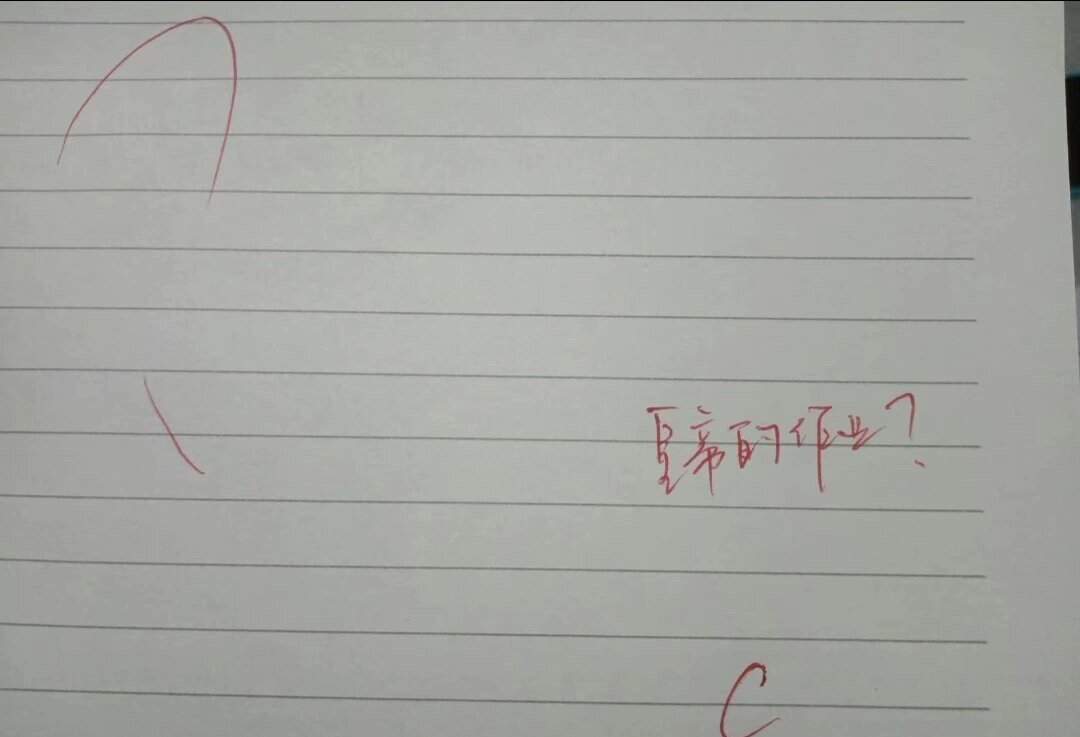 ?
皇帝的作业?
C